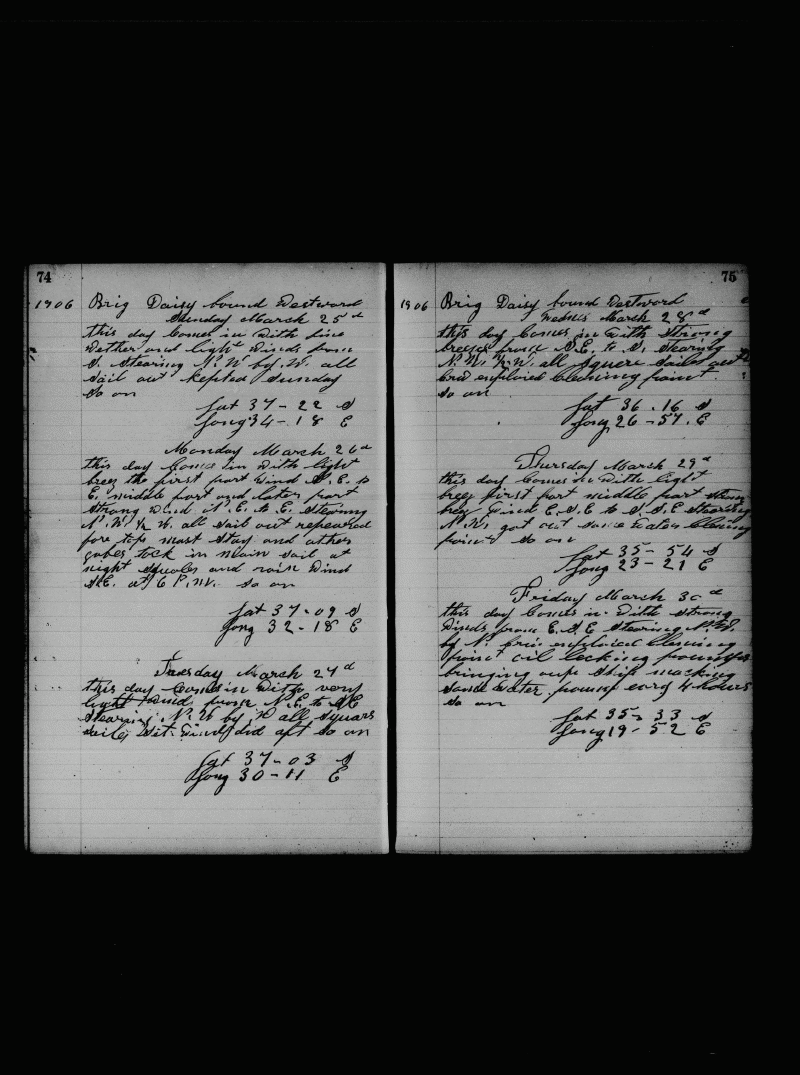 74
1906 Brig Daisy bound Westward
Sunday March 25d
this day Comes in With fine
Wether and light Winds from
S. Stearing N. W by. W. all
Sail out kepted Sunday
So on
Lat 37 - 22 S
Long 34 - 18 E
Monday March 26d
this day Comes in With light
breez the first part Wind S. E. to
E. middle part and later part
Strong Wind N. E. to E. Stearing
N. W. 1/2 W. all Sail out repeared
fore top mast Stay and other
gobes tock in main Sail at
night Squales and rain Wind
S.E. at 6 P.M. So on
Lat 37 - 09 S
Long 32 - 18 E
Tuesday March 27d
this day Comes in With very
light Wind from N. E. to S.E
Stearing N. W by W all Squars
Sails Set Wind did aft So on
Lat 37 - 03 S
Long 30 - 11 E
75
1906 Brig Daisy bound Westword
Wednes March 28d
this day Comes in With Strong
breeze from S.E. to S. Stearing
N. W. 1/2 W. all Squere Sails out
Crew emploied Cleaning paint
So on
Lat 36 . 16 S
Long 26 - 57. E
Thursday March 29d
this day Comes in With light
breez first part middle part Strong
brez Wind E.S.E to S.S.E Stearing
N.W. got out Some Water Clening
paint So on
Lat 35 - 54 S
Long 23 - 21 E
Friday March 30d
this day Comes in With Strong
Winds from E.S.E Stearing N.W.
by N. Crew emploied Clening
paint oil lecking pumps
bringing Ship macking
Some Water, pump evry 4 hours
So on
Lat 35 - 33 S
Long 19 - 52 E